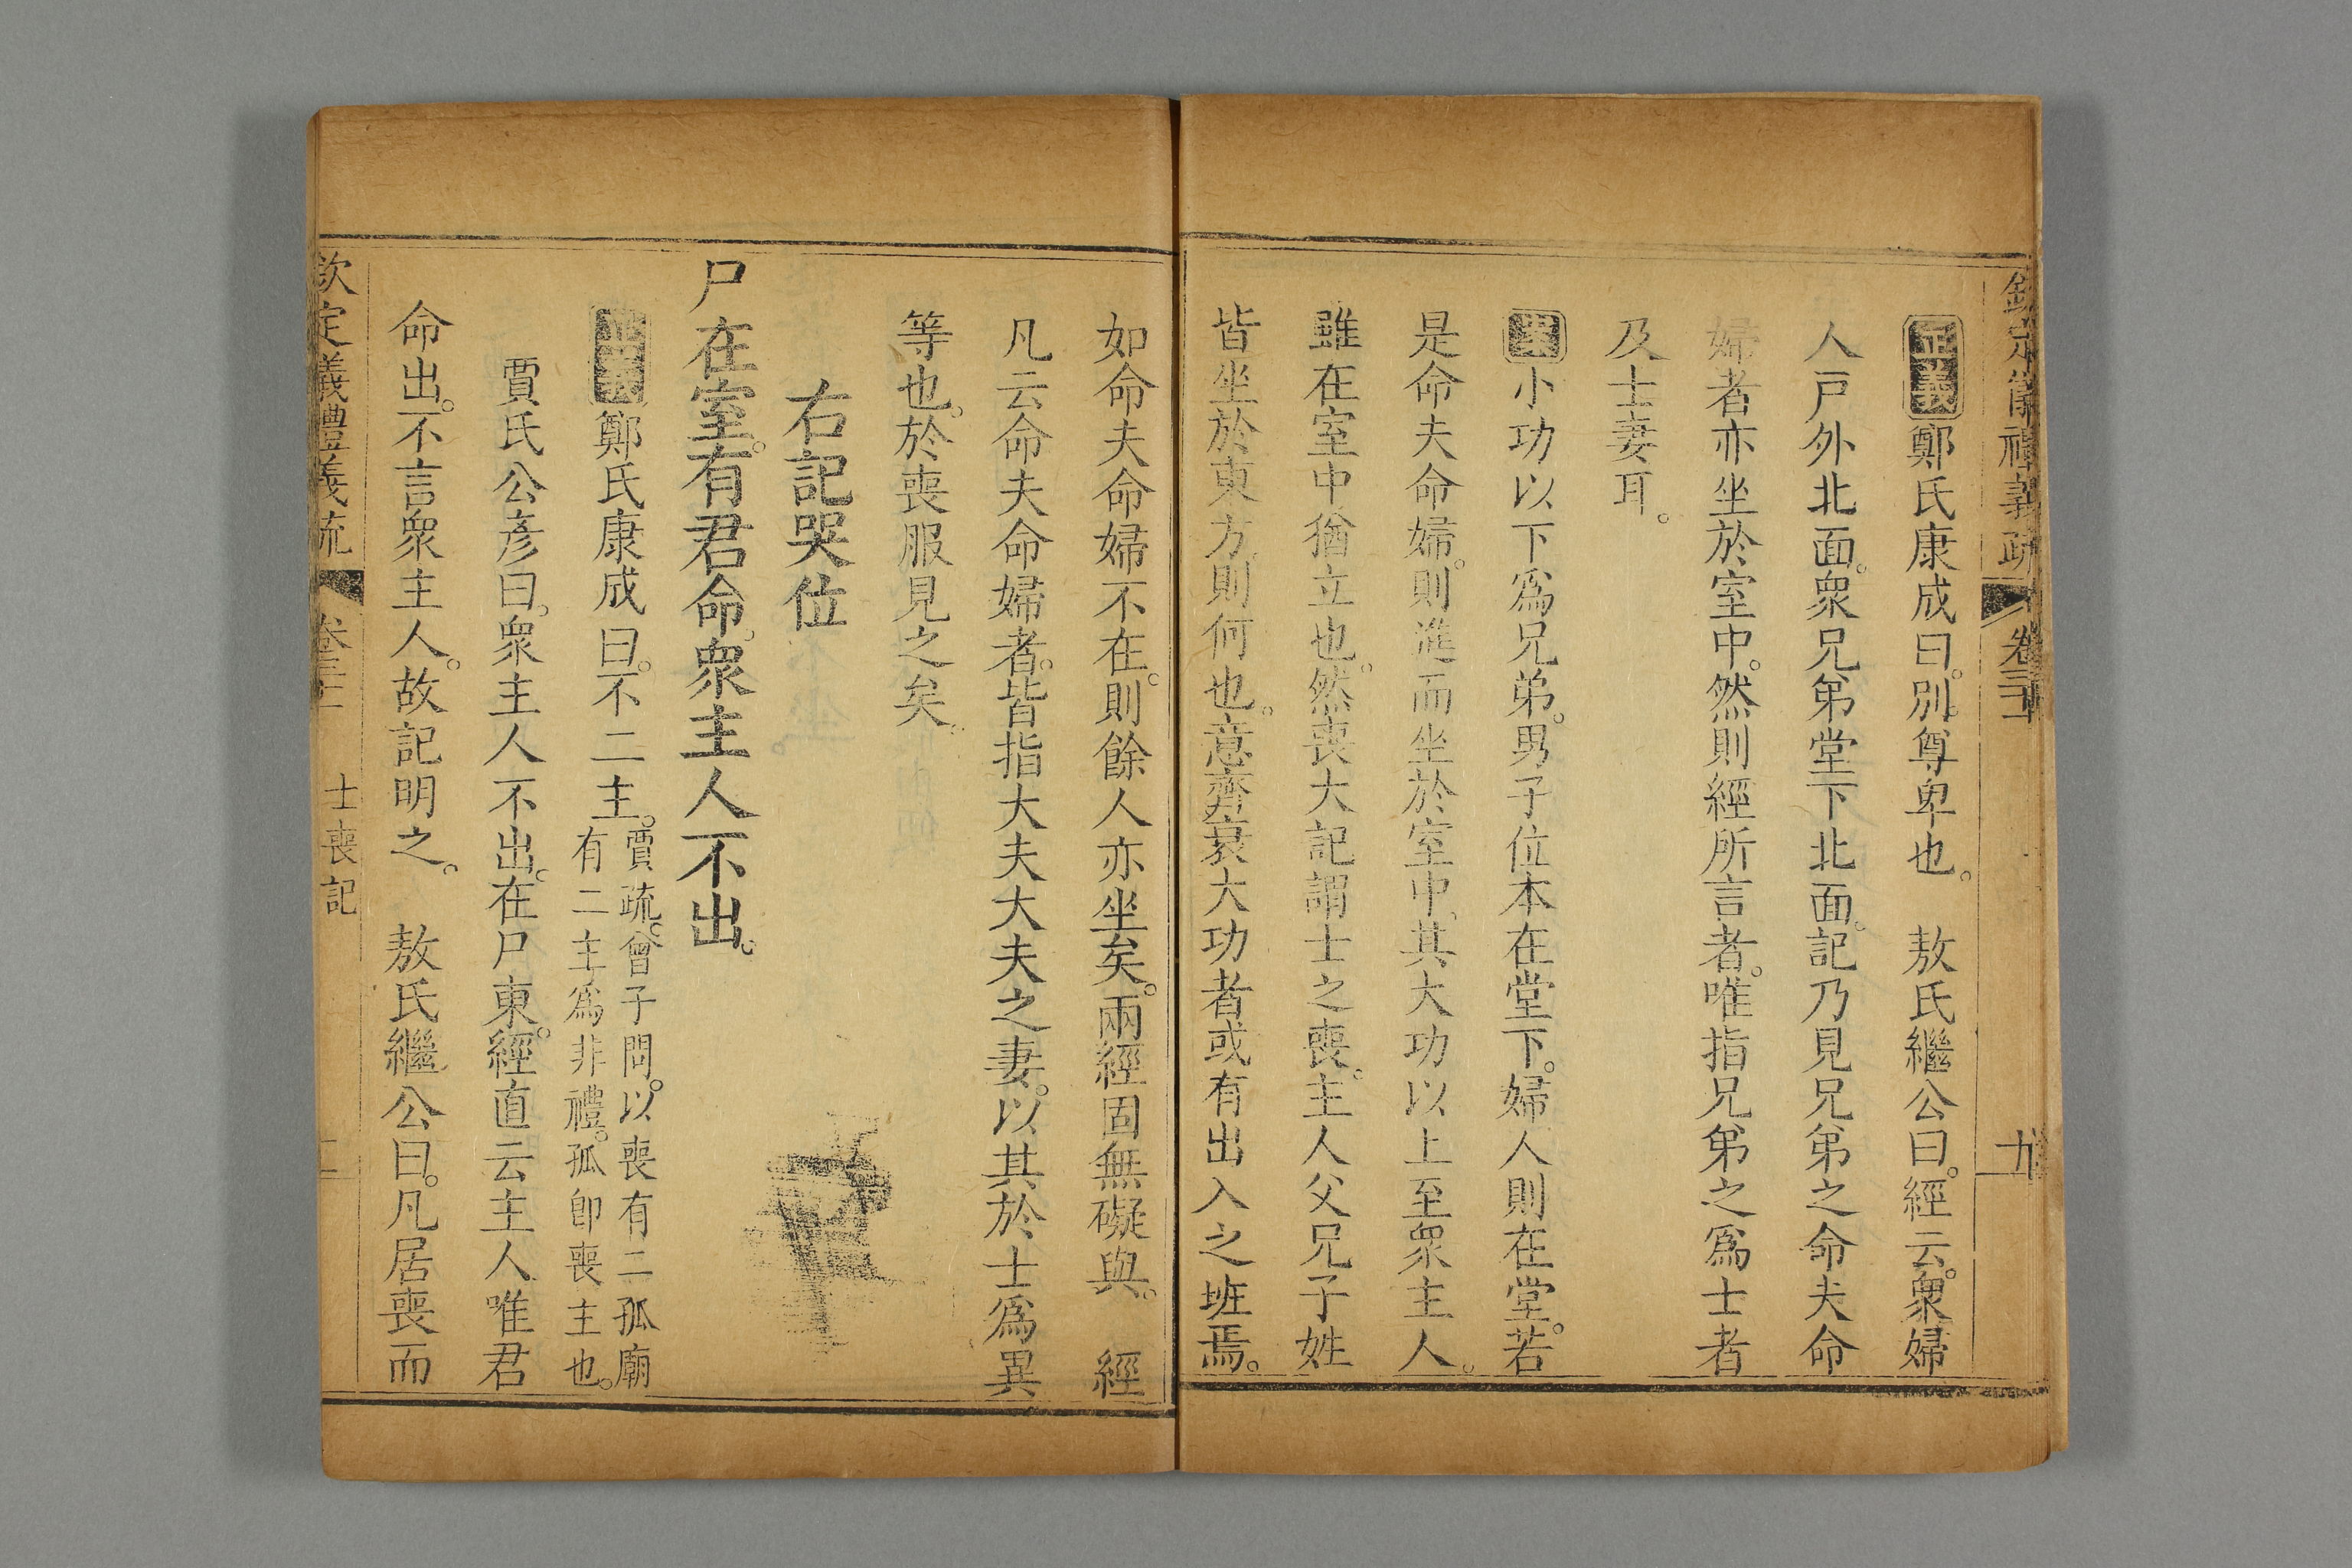 欽定儀禮義疏 卷三十一 九
正義鄭氏康成曰。別尊卑也。 敖氏繼公曰。經云。衆婦
人戶外北面。衆兄弟堂下北面。記乃見兄弟之命夫命
婦者亦坐於室中。然則經所言者。唯指兄弟之爲士者
及士妻耳。
案小功以下爲兄弟。男子位本在堂下。婦人則在堂。若
是命夫命婦。則進而坐於室中。其大功以上至衆主人。
雖在室中猶立也。然喪大記謂士之喪。主人父兄子姓
皆坐於東方。則何也。意齊衰大功者或有出入之班焉。
如命夫命婦不在。則餘人亦坐矣。兩經固無礙與。 經
凡云命夫命婦者。皆指大夫大夫之妻。以其於士爲異
等也。於喪服見之矣。
右記哭位
尸在室。有君命。衆主人不出。
正義鄭氏康成曰。不二主。賈疏。曾子問。以喪有二孤廟
有二主爲非禮。孤卽喪主也。
賈氏公彥曰。衆主人不出。在尸東。經直云主人唯君
命出。不言衆主人。故記明之。 敖氏繼公曰。凡居喪而
欽定儀禮義疏 卷三十一 士喪記